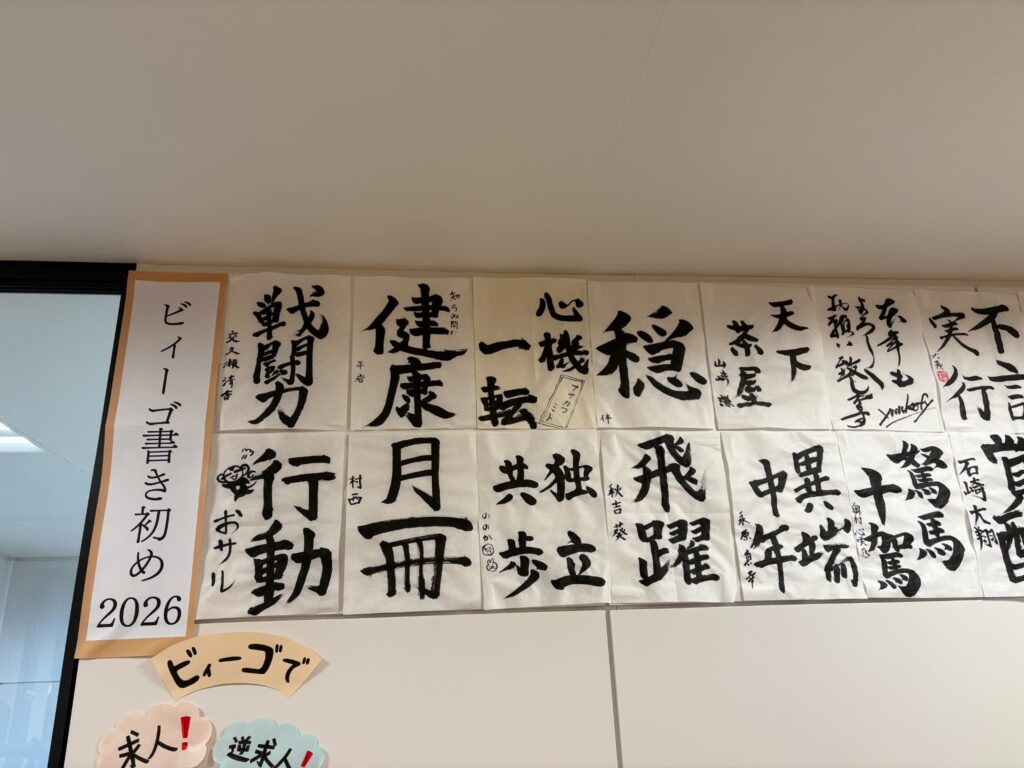 ビィーゴ書き初め
2026
戦闘力
健康
知らぬ間に
平岩
心機
一転
アサカワ
ミト
穏
伴
天下
茶屋
山崎 蝶
本年も
よろしく
お願い致します
不言
実行
行動
おサル
月一冊
村西
独立
共歩
ののか
飛躍
秋吉 葵
異端
中年
駑馬
十駕
石崎大翔
ビィーゴで
求人!
逆求人!